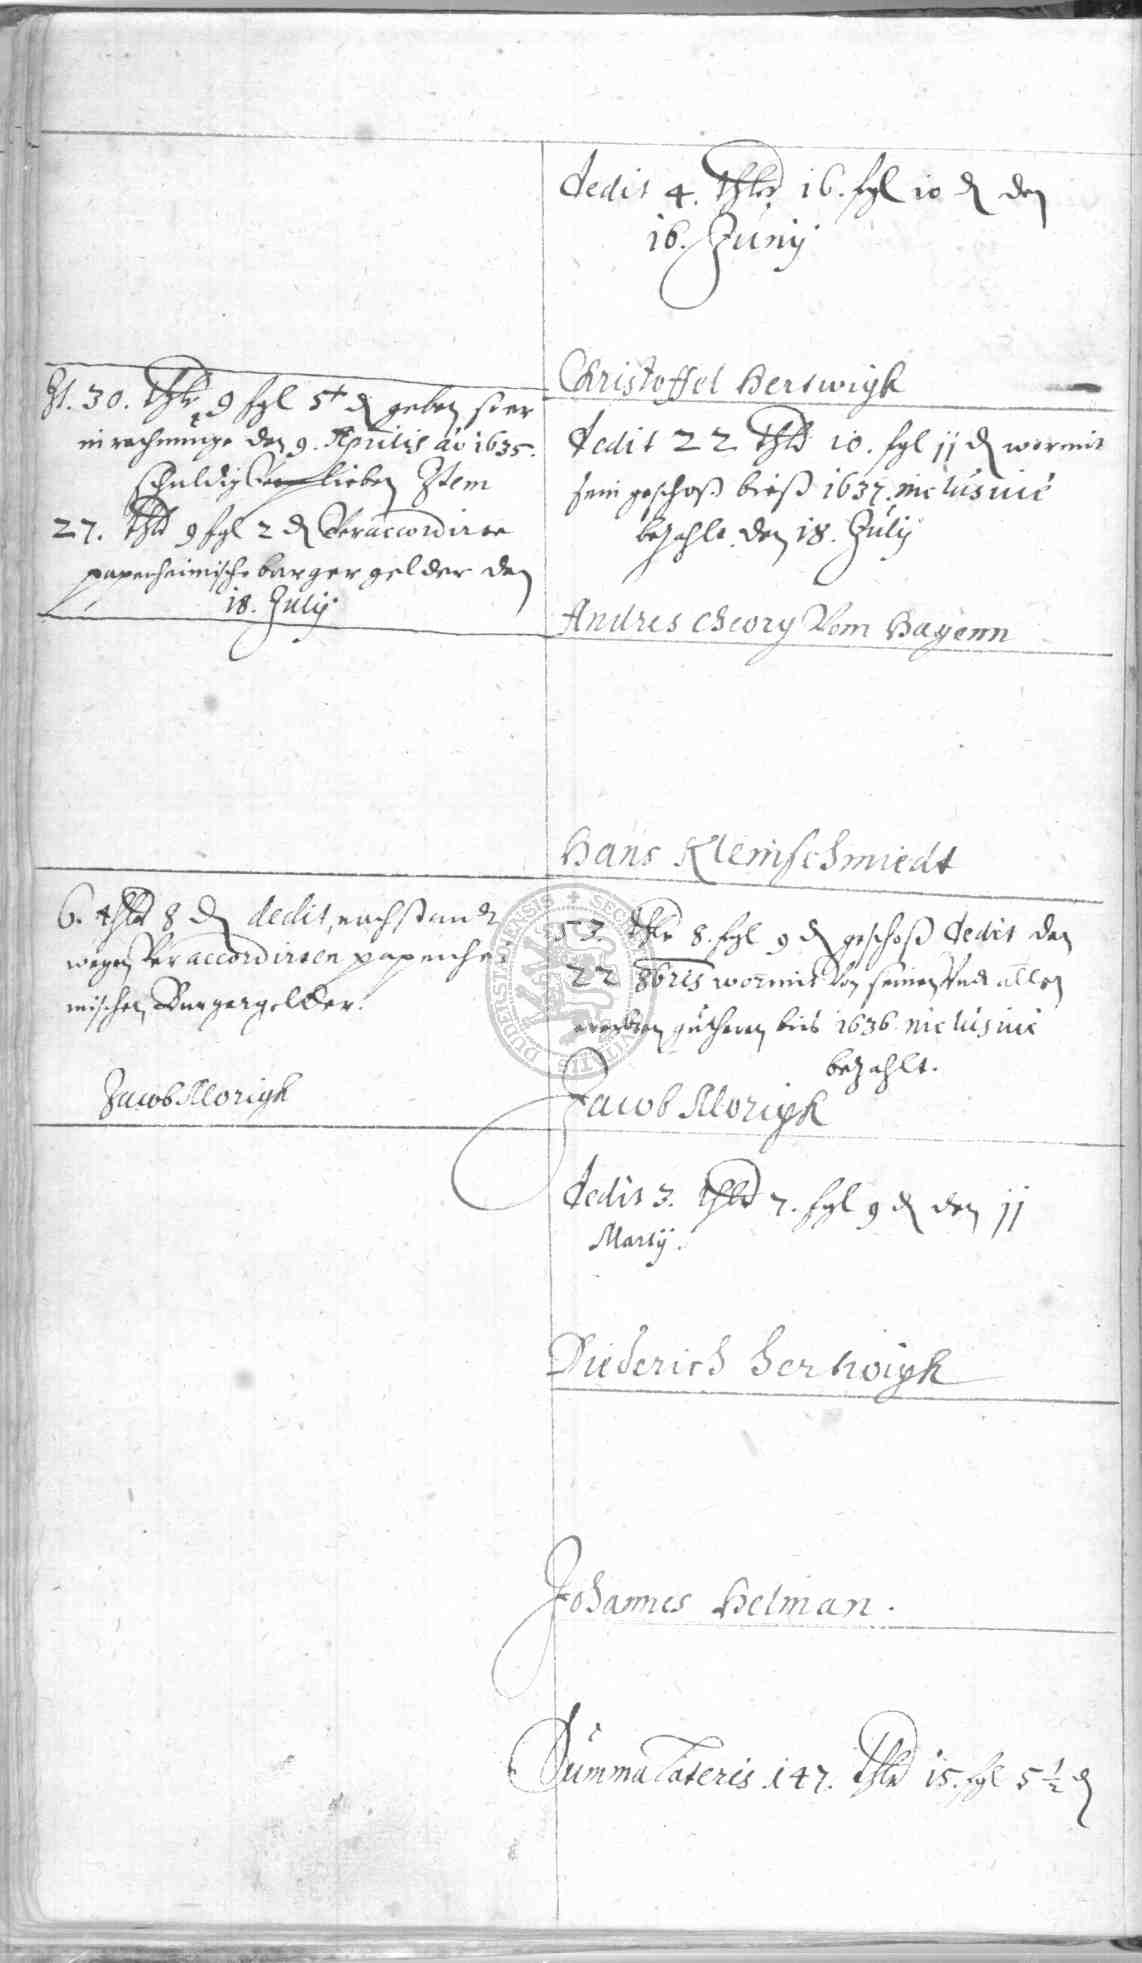 dedit 4. thlr 16. sgl 10 ₰ den
16. Junij
Christoffel Hertwigk
It. 30. thlr 9 sgl 5½ ₰ geben so er
in rechnunge den 9. Aprilis ao 1635.
schuldig verblieben Item
27. thlr 9 sgl 2 ₰ Veraccordirte
papenheimische burger gelder den
18. Julij.
dedit 22 thlr 10. sgl 11 ₰ wormit
sein geschoß bieß 1637. inclusive
bezahlt den 18. Julij
Andres Cheorg Vom Hagenn
Hans Kleinschmiedt
6. thlr 8 ₰ dedit, nachstandt
wegen Veraccordirten papenhei
mischen Burgergelder.
Jacob Morigk
53. thlr 8. sgl 9 ₰ geschoß dedit den
22 8bris wormit von seinen und allen
ererbten gütheren bieß 1636. inclusive
bezahlt.
Jacob Morigk
dedit 3. thlr 7. sgl 9 ₰ den 11
Martij.
Diederich Hertwigk
Johannes Helman.
Summa Lateris 147. thlr 15. sgl 5 ½ ₰
DUDERSTADENSIS SECR CIVITATIS